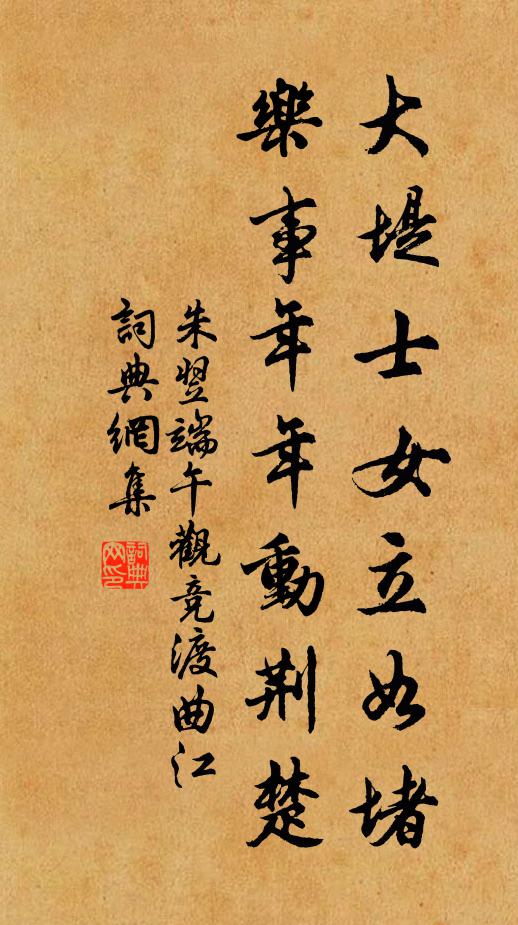 大堤士女立如堵
樂事年年動荆楚
朱翌端午觀竞渡曲江
詞典網集
詞典
网印